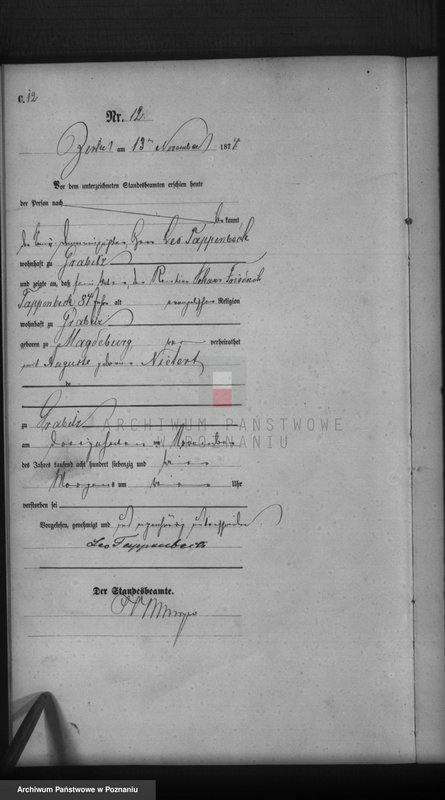 C. 12
Nr. 12
Zerkow am 13ten November 1874
Vor dem unterzeichneten Standesbeamten erschien heute
der Person nach
bekannt
der Herr Leo Tappenbeck
wohnhaft zu Grabitz
und zeigte an, daß sein Vater der Rentier Johann Friedrich
Tappenbeck 84 Jahre alt evangelischer Religion
wohnhaft zu Grabitz
geboren zu Magdeburg, war verheirathet
mit Auguste geborene Nietert
zu Grabitz
ARCHIWUM PAŃSTWOWE
W POZNANIU
am dreizehnten November
des Jahres tausend acht hundert siebenzig und vier
Morgens um Uhr
verstorben sei
Vorgelesen, genehmigt und und eigenhändig unterschrieben
Leo Tappenbeck
Der Standesbeamte.
Archiwum Państwowe w Poznaniu